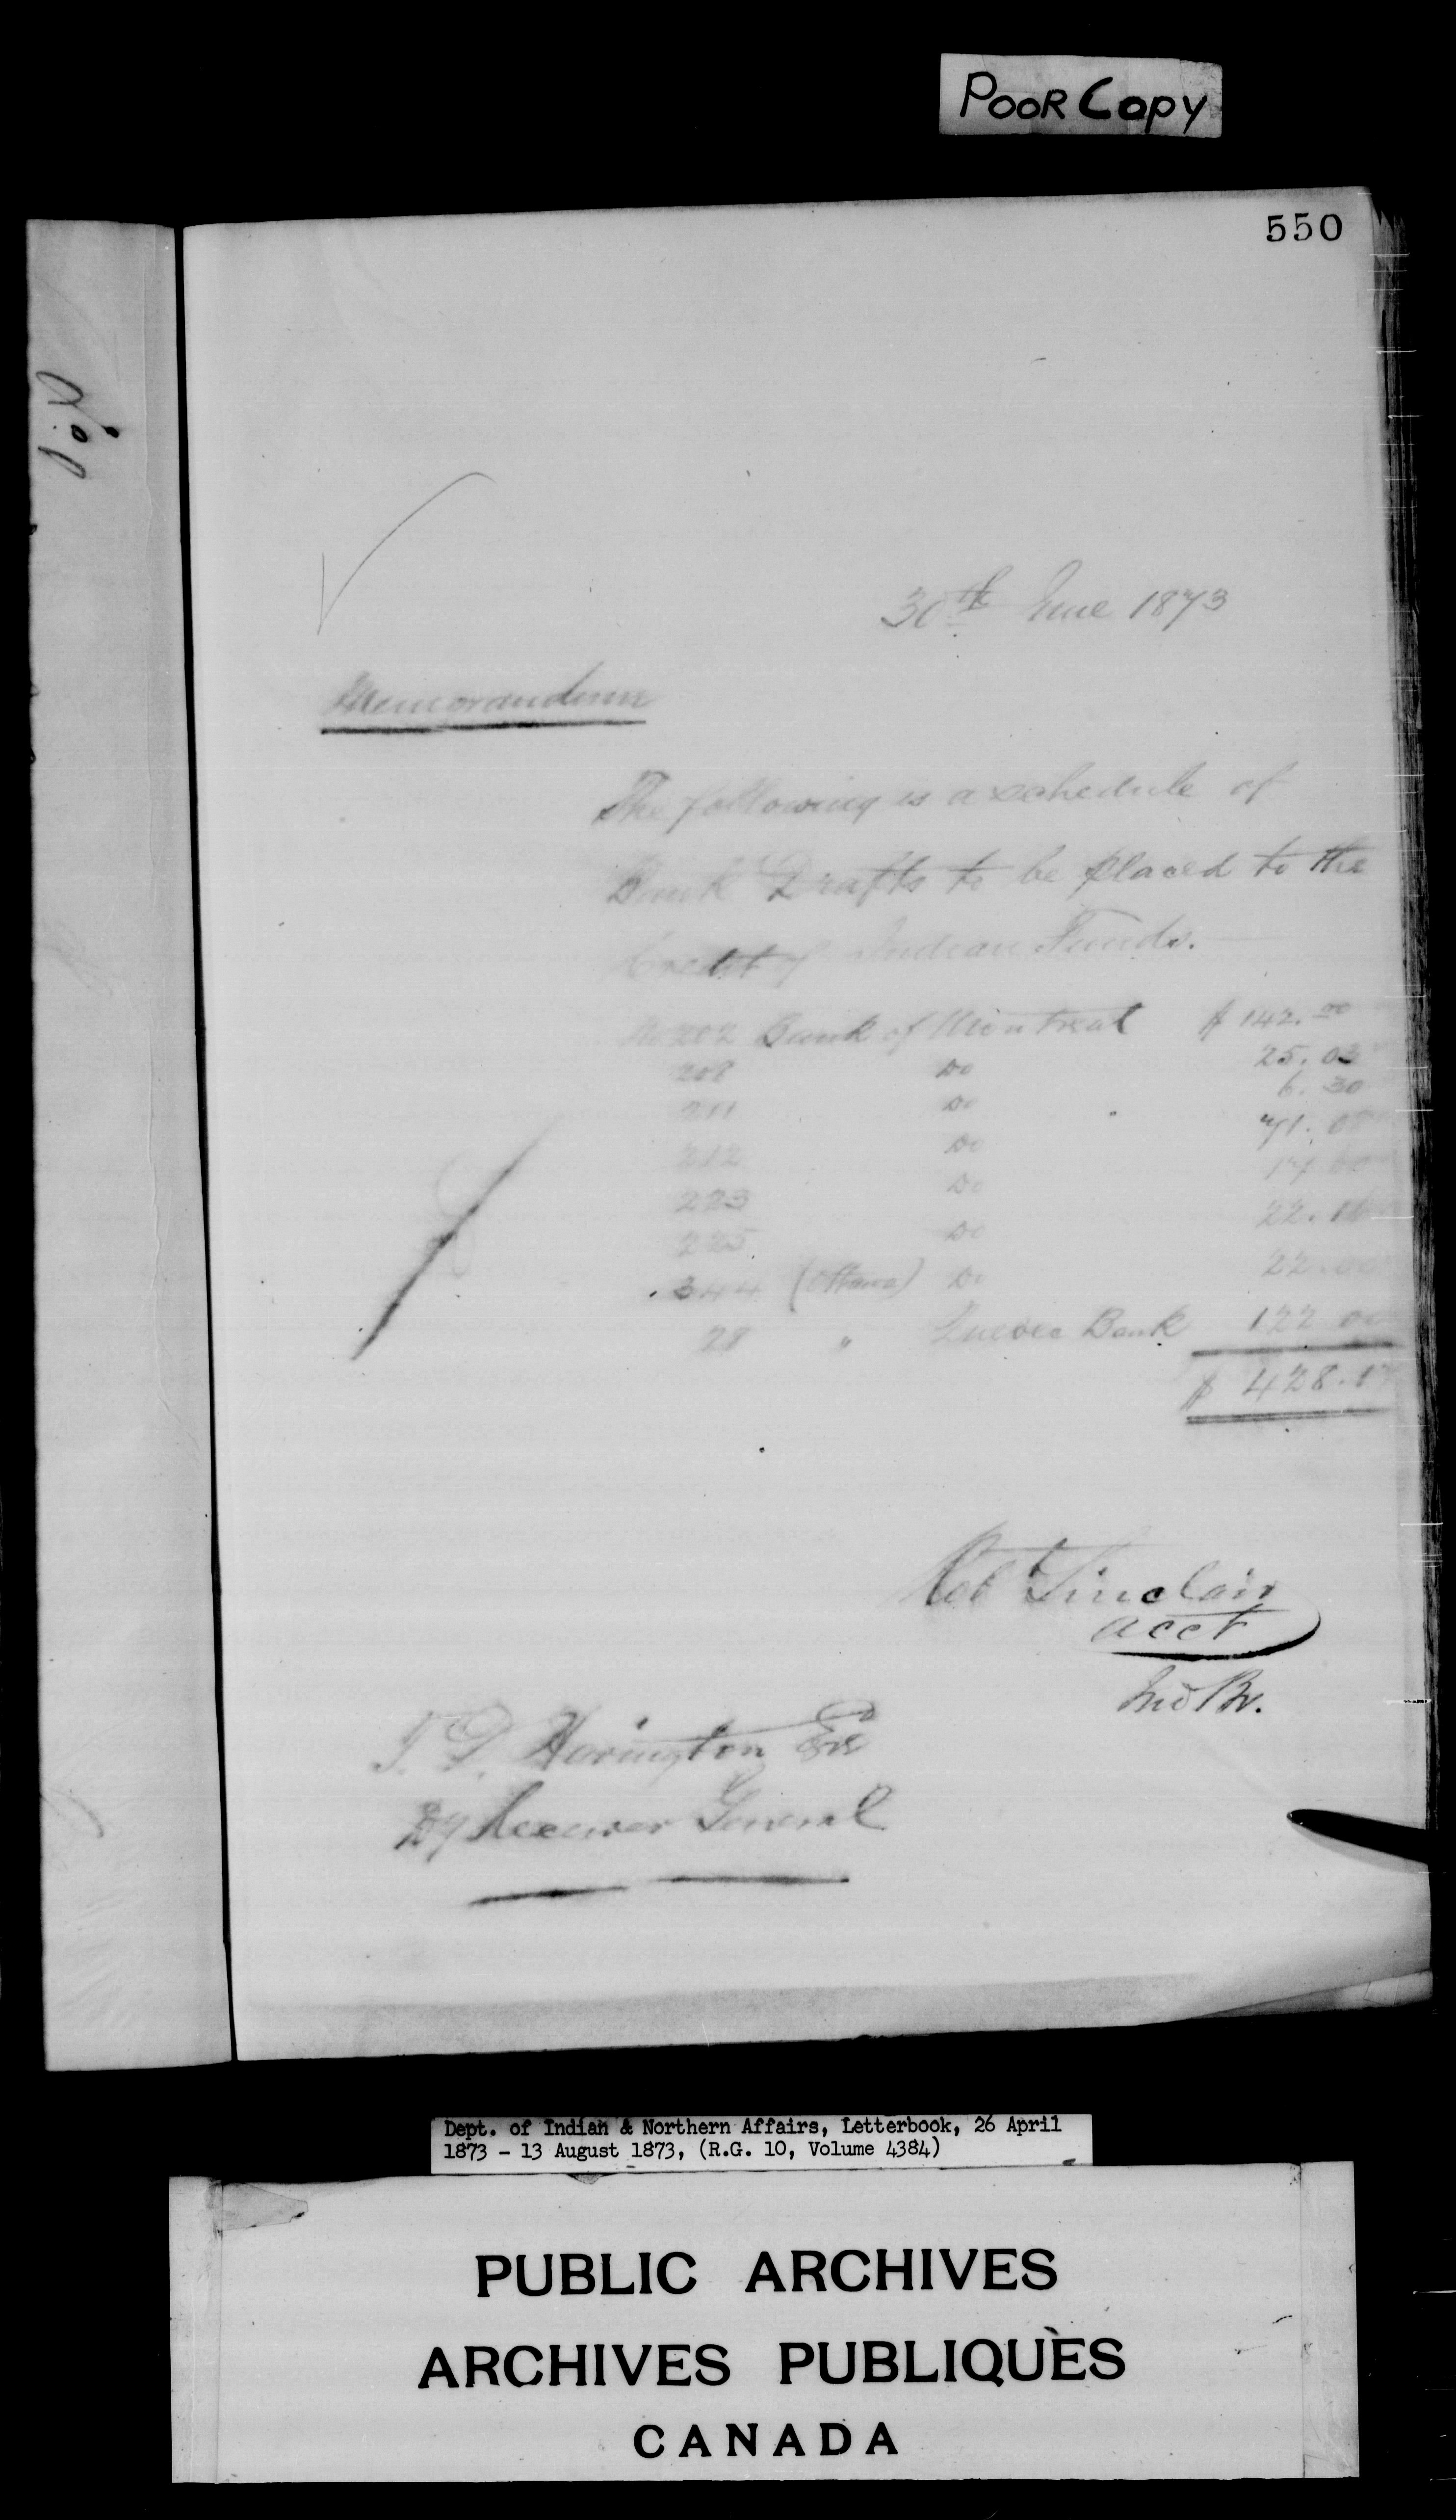 POOR Copy
550
No 1
30th June 1873
Memorandum
The following is a schedule of
Bank Drafts to be placed to the
Credit of Indian Funds.
No 202 Bank of Montreal $ 142.00
208 Do 25.03
211 Do 6.30
212 Do 71.00
223 Do 17
225 Do 22.
344 (Ottawa) Do 22.00
28 " Quebec Bank 122.00
$ 428.1
Robt Sinclair
acct
Ind Br.
T. D. Harington Esq
Dy Receiver General
Dept. of Indian & Northern Affairs, Letterbook, 26 April
1873 - 13 August 1873, (R.G. 10, Volume 4384)
PUBLIC ARCHIVES
ARCHIVES PUBLIQUES
CANADA